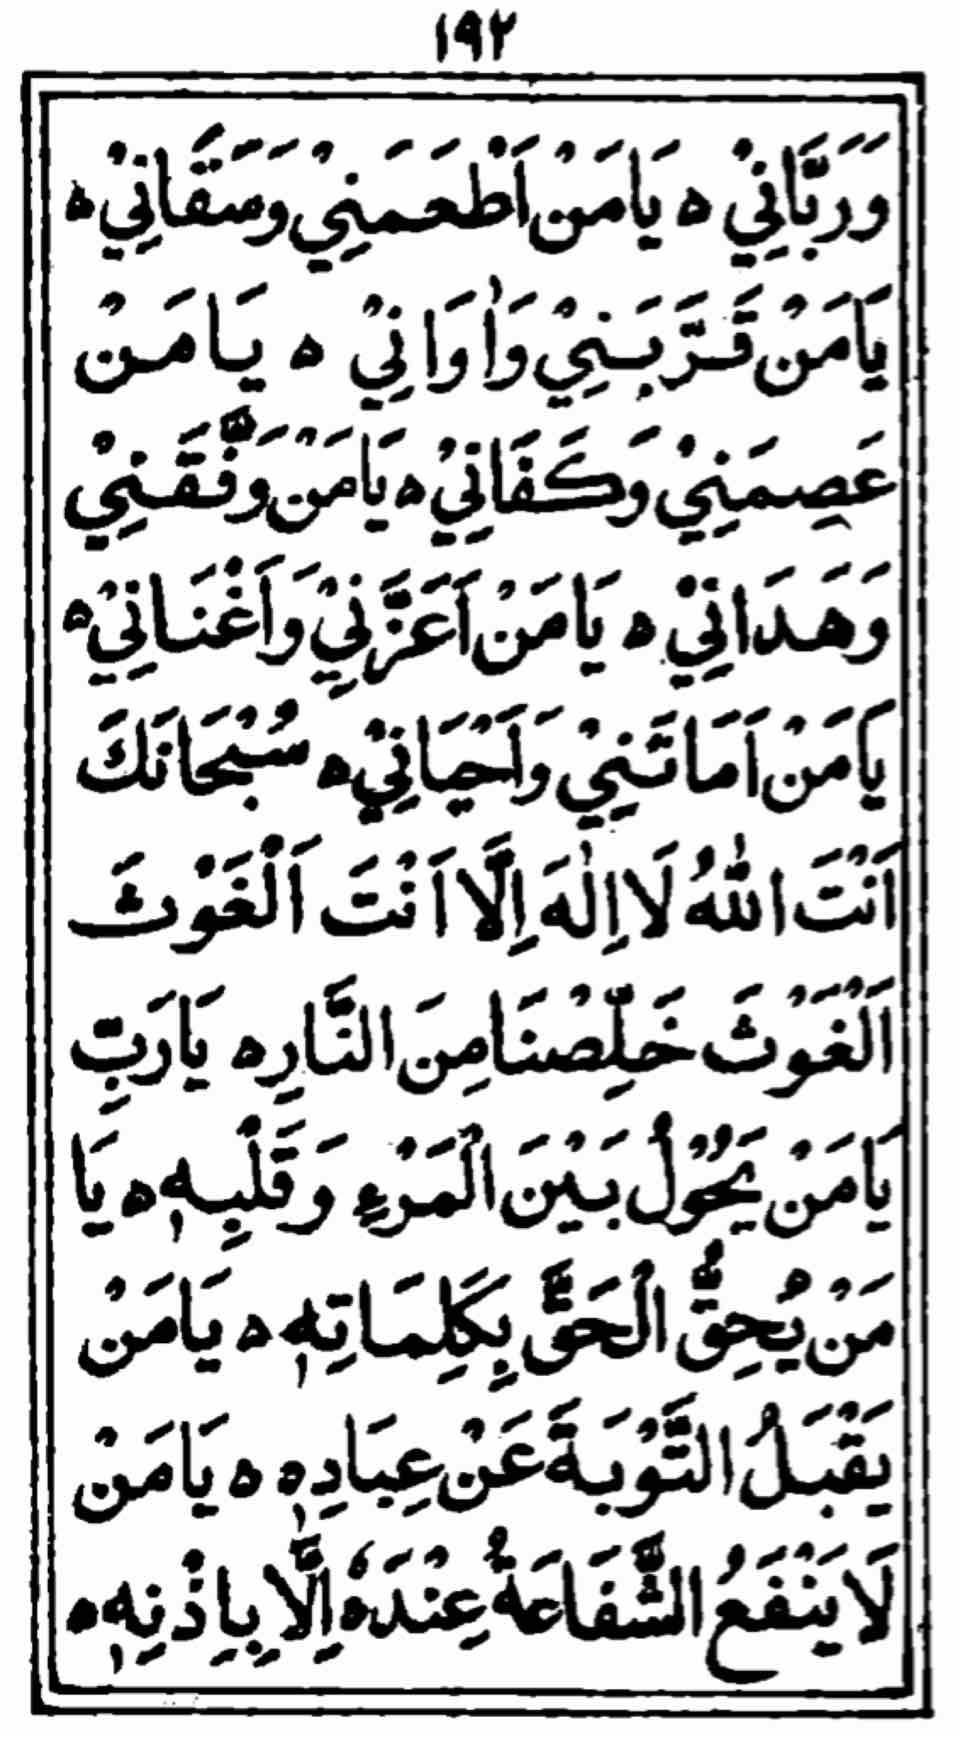 ١٩٢
وَرَبَّانِيْ ه يَامَنْ اَطْعَمَنِيْ وَسَقَانِيْ ه
يَامَنْ قَرَّبَنِيْ وَاٰوَانِيْ ه يَامَنْ
عَصِمَنِيْ وَكَفَانِيْ ه يَامَنْ وَفَّقَنِيْ
وَهَدَانِيْ ه يَامَنْ اَعَزَّنِيْ وَاَغْنَانِيْ ه
يَامَنْ اَمَاتَنِيْ وَاَحْيَانِيْ ه سُبْحَانَكَ
اَنْتَ اللّٰهُ لَا اِلٰهَ اِلَّا اَنْتَ اَلْغَوْثَ
اَلْغَوْثَ خَلِّصْنَا مِنَ النَّارِ ه يَارَبِّ
يَامَنْ يَحُوْلُ بَيْنَ الْمَرْءِ وَقَلْبِهٖ ه يَا
مَنْ يُحِقُّ الْحَقَّ بِكَلِمَاتِهٖ ه يَامَنْ
يَقْبَلُ التَّوْبَةَ عَنْ عِبَادِهٖ ه يَامَنْ
لَا يَنْفَعُ الشَّفَاعَةُ عِنْدَهٗ اِلَّا بِاِذْنِهٖ ه